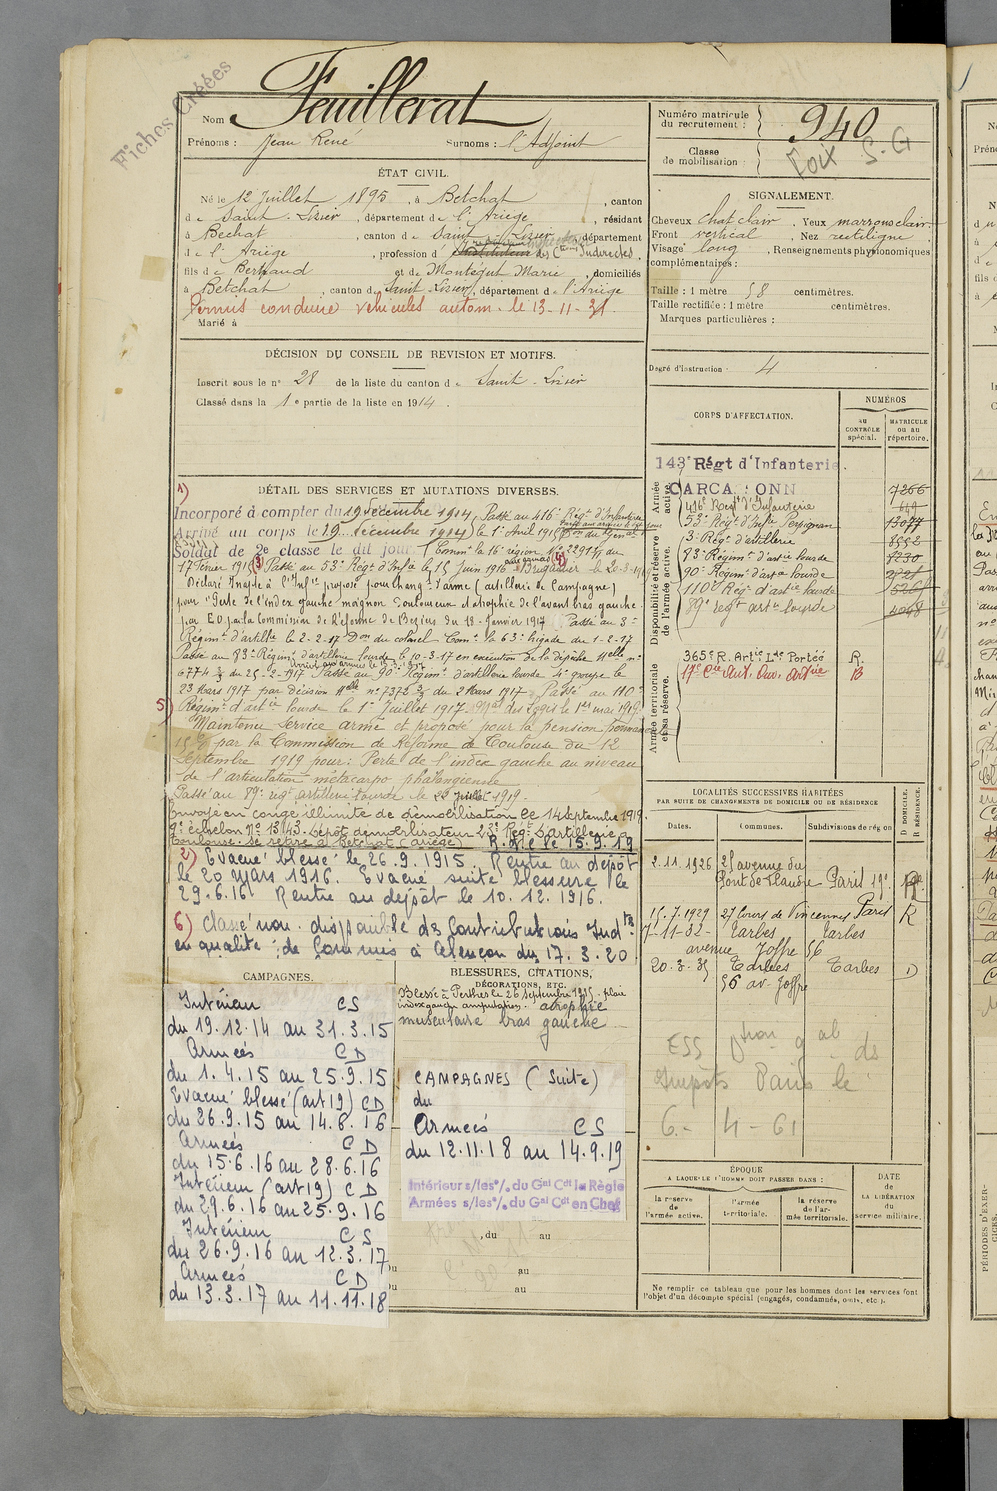 Fiches Créées
Nom Feuillerat
Prénoms : Jean René Surnoms : l'Adjoint
Numéro matricule du recrutement : 940
Classe de mobilisation :
Foix S. G
ÉTAT CIVIL.
Né le 12 Juillet 1895, à Betchat, canton
de Saint-Lizier, département de l'Ariège, résidant
à Bechat, canton de Saint-Lizier, département
de l'Ariège, profession d'Instituteur des Ctions Indirectes,
fils de Bertrand et de Montégut Marie, domiciliés
à Betchat, canton de Saint Lizier, département de l'Ariège
Permis conduire véhicules autom. le 13-11-31.
Marié à
SIGNALEMENT.
Cheveux chat clair. Yeux marrons clair.
Front vertical. Nez rectiligne
Visage long, Renseignements physionomiques
complémentaires :
Taille : 1 mètre 58 centimètres.
Taille rectifiée : 1 mètre centimètres.
Marques particulières :
Degré d'instruction : 4
DÉCISION DU CONSEIL DE REVISION ET MOTIFS.
Inscrit sous le n° 28 de la liste du canton de Saint-Lizier
Classé dans la 1e partie de la liste en 1914.
DÉTAIL DES SERVICES ET MUTATIONS DIVERSES.
1) Incorporé à compter du 19 décembre 1914, Passé au 416e Régt d'Infanterie
Arrivé au corps le 19 décembre 1914, le 1er Avril 1915
Soldat de 2e classe le dit jour
17 février 1915 3) Passé au 53e Régt d'Infie le 15 Juin 1916 4) Brigadier le 20-3-19
Déclaré Inapte à l'Infie proposé pour changt d'arme (artillerie de Campagne)
pour "Perte de l'index gauche moignon douloureux et atrophie de l'avant bras gauche
par la Commission de Réforme de Béziers du 18-Janvier 1917 Passé au 3e
Régimt d'artillie le 2-2-17 Don du colonel Comt la 63e brigade du 1-2-17
Passé au 83e Régimt d'artillerie lourde le 10-3-17 en exécution de la dépêche Melle n°
6774 3/3 du 25-2-1917 Passé au 90e Régimt d'artillerie lourde 4e groupe le
23 Mars 1917 par décision Melle n° 7372 3/3 du 2 Mars 1917 Passé au 110e
5) Régimt d'artie lourde le 1er Juillet 1917. Mal des Logis le 1er mai 1919.
Maintenu Service armé et proposé pour la pension permanente
15 % par la Commission de Réforme de Toulouse du 12
Septembre 1919 pour : Perte de l'index gauche au niveau
de l'articulation métacarpo phalangienne
Passé au 89e régt artillerie lourde le 22 Juillet 1919.
Envoyé en congé illimité de démobilisation le 14 septembre 1919
9e échelon N° 1343. Dépôt démobilisateur 23e Régt d'artillerie à
Toulouse. Se retire à Betchat (Ariège) R. A le 15.9.19
2) Evacué blessé le 26.9.1915. Rentre au dépôt
le 20 mars 1916. Evacué suite blessure le
29.6.16. Rentre au dépôt le 10.12.1916.
6) Classé non disponible des Contributions Indtes
en qualité de Commis à Alençon du 17.3.20
CORPS D'AFFECTATION.
NUMÉROS
AU CONTRÔLE spécial.
MATRICULE ou au répertoire.
Armée active.
143e Régt d'Infanterie.
CARCASSONNE 7266
416e Régt d'Infanterie 649
53e Régt d'Infie Perpignan 13077
Disponibilité et réserve de l'armée active.
3e Régt d'artillerie 8552
83e Régimt d'artie lourde 8230
90e Régimt d'artie lourde
110e Régt d'artie lourde
89e regt artie lourde 4048
Armée territoriale et sa réserve.
365e R. Artie Lde Portée R.
17e Cie Aut. Ouv. Artie B
LOCALITÉS SUCCESSIVES HABITÉES
PAR SUITE DE CHANGEMENTS DE DOMICILE OU DE RÉSIDENCE
Dates. Communes. Subdivisions de région
D DOMICILE. R RÉSIDENCE.
2.11.1926 25 avenue du
Pont de Flandre Paris 19e
15.7.1929 27 Cours de Vincennes Paris R
7-11-32- Tarbes Tarbes
avenue Joffre 56
20.3.35 Tarbes Tarbes D
56 av. Joffre
ESS Dtion gale des
Impôts Paris le
6.- 4-61
CAMPAGNES.
Intérieur CS
du 19.12.14 au 31.3.15
Armées CD
du 1.4.15 au 25.9.15
Evacué blessé (art 19) CD
du 26.9.15 au 14.6.16
Armées CD
du 15.6.16 au 28.6.16
Intérieur (art 19) CD
du 29.6.16 au 25.9.16
Intérieur CS
du 26.9.16 au 12.3.17
Armées CD
du 13.3.17 au 11.11.18
BLESSURES, CITATIONS,
DÉCORATIONS, ETC.
Blessé à Perthes le 26 septembre 1915. plaie
index gauche amputation. atrophie
musculaire bras gauche
CAMPAGNES (Suite)
du
Armées CS
du 12.11.18 au 14.9.19
Intérieur s/les °/. du Gal Cdt la Régie
Armées s/les °/. du Gal Cdt en Chef
, du au
au
au
ÉPOQUE
A LAQUELLE L'HOMME DOIT PASSER DANS :
la réserve de l'armée active.
l'armée territoriale.
la réserve de l'armée territoriale.
DATE de LA LIBÉRATION du service militaire.
Ne remplir ce tableau que pour les hommes dont les services font
l'objet d'un décompte spécial (engagés, condamnés, omis, etc.).
PÉRIODES D'EXER-
CICES.